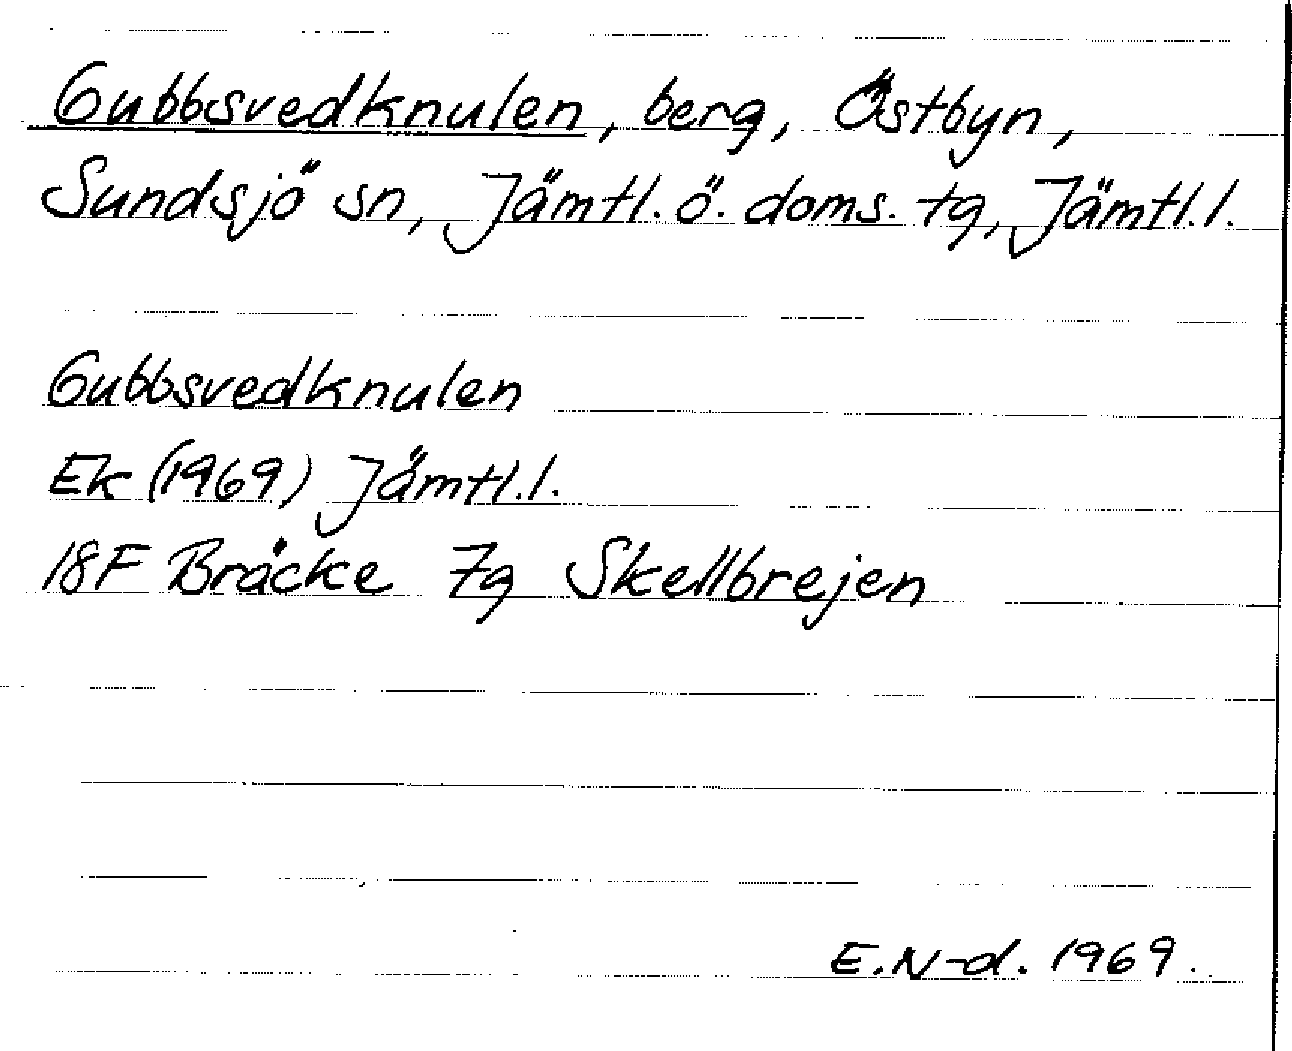 Gubbsvedknulen, berg, Östbyn,
Sundsjö sn, Jämtl. ö. doms. tg, Jämtl. l.
Gubbsvedknulen
Ek (1969) Jämtl. l.
18F Bräcke 7g Skellbrejen
E. N-d. 1969.